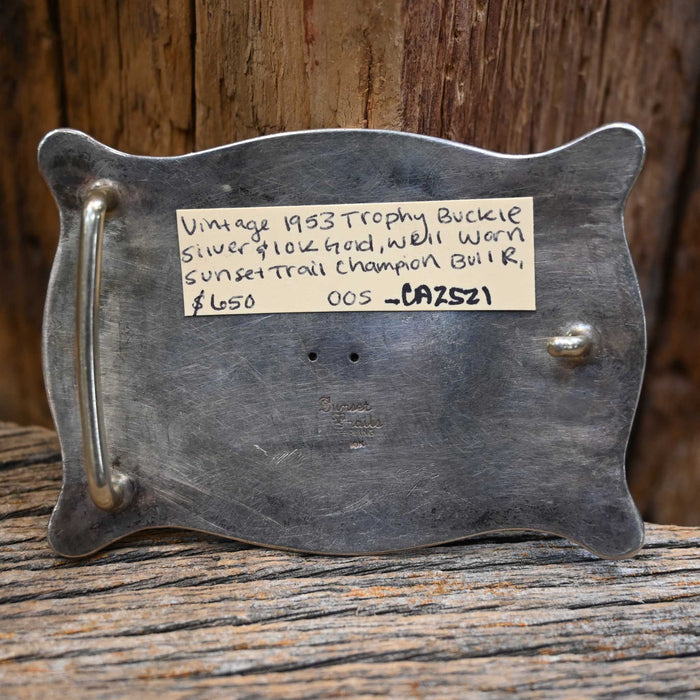 Vintage 1953 Trophy Buckle
Silver & 10K Gold, Well Worn
Sunset Trail Champion Bull R,
$650 OOS -CA2521
Sunset
Trails